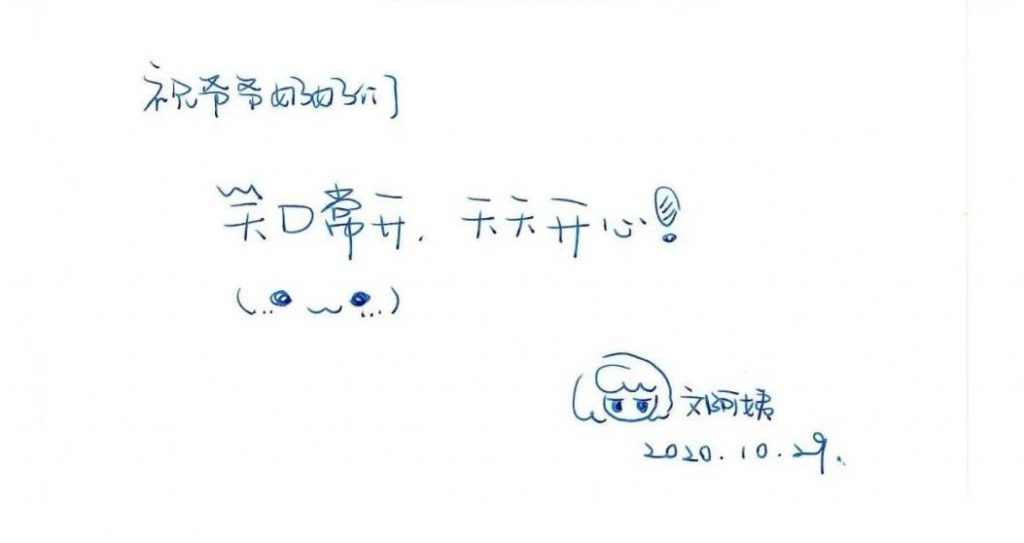 祝爷爷奶奶们
笑口常开，天天开心！
文阿姨
2020.10.29.